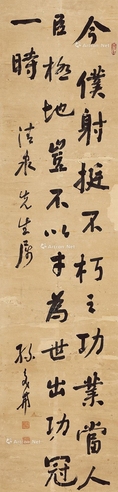 今僕射挺不朽之功業當人
臣極地豈不以才為世出功冠
一時
潔泉先生屬
孫文